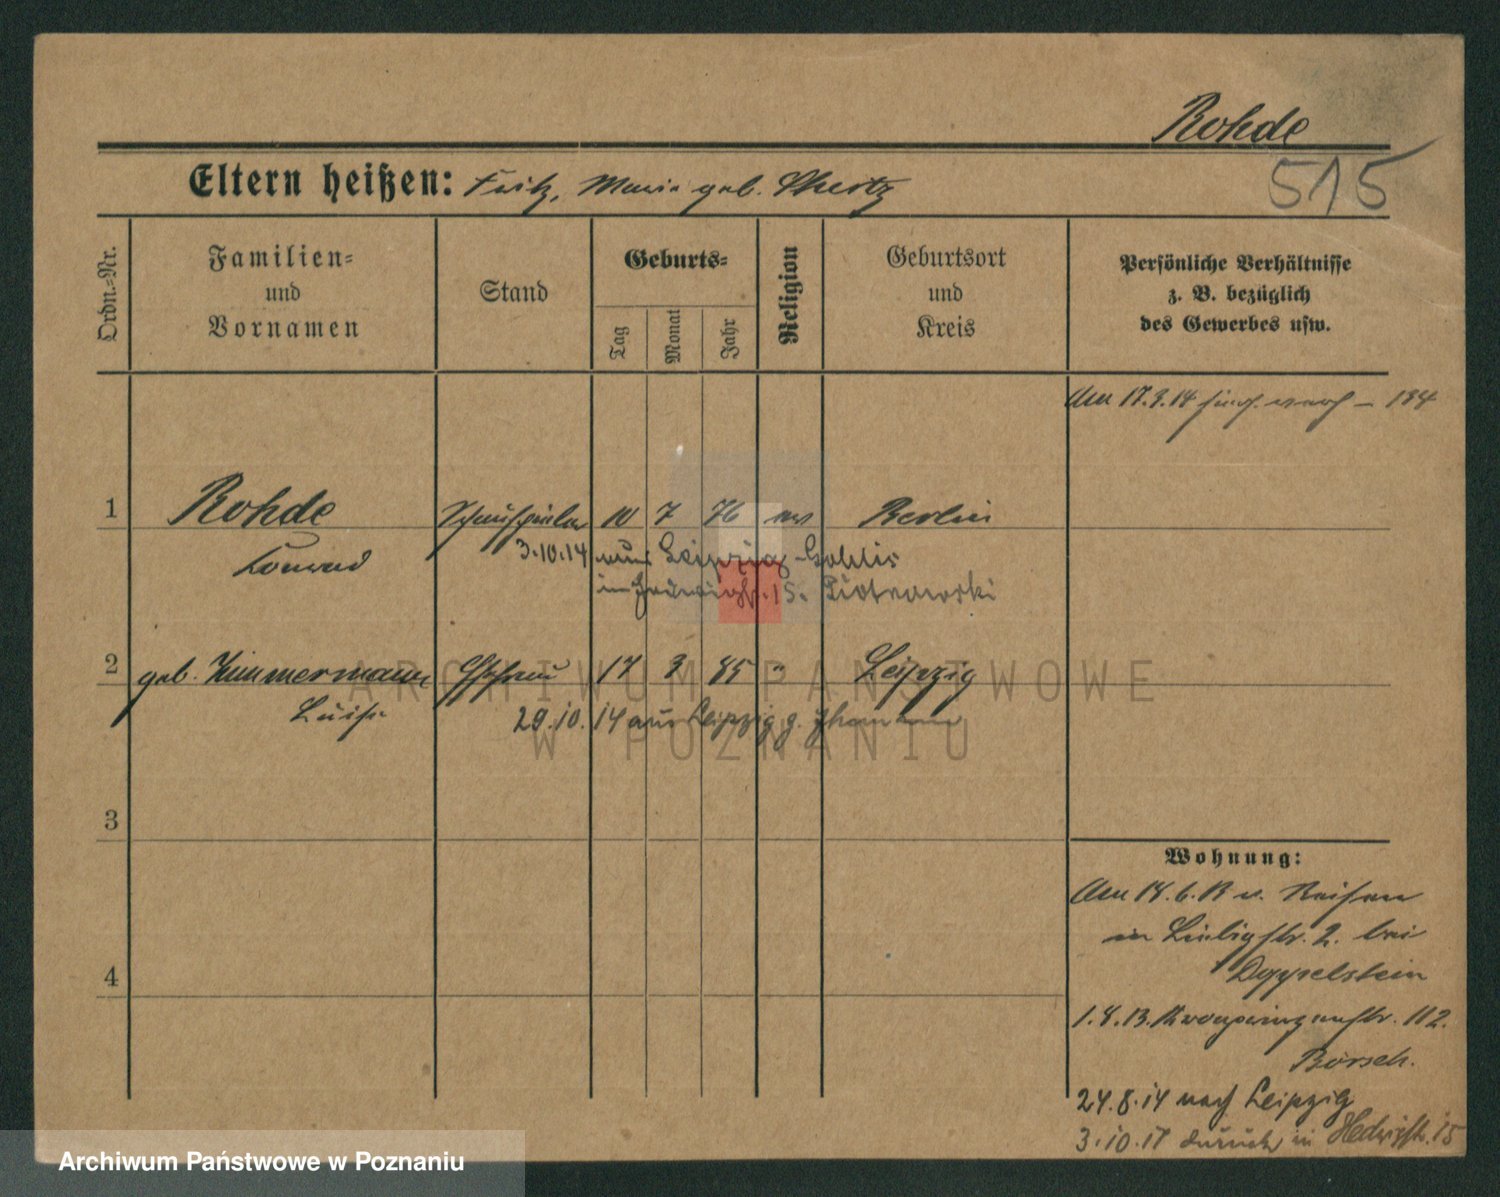 Rohde
515
Eltern heißen: Fritz, Marie geb.
Ordn.-Nr.
Familien-
und
Vornamen
Stand
Geburts-
Tag
Monat
Jahr
Religion
Geburtsort
und
Kreis
Persönliche Verhältnisse
z. B. bezüglich
des Gewerbes usw.
Am 17.3.14
1 Rohde Schauspieler 10 7 76 ev Berlin
Konrad 3.10.14 aus Leipzig-Gohlis
in Hedwigstr. 15. Piotrowski
2 geb. Zimmermann Ehefrau 17 3 85 " Leipzig
Luise 29.10.14 aus Leipzig z. Ehemann
3
4
Wohnung:
Am 18.6.13 v. Reisen
in Liebigstr. 2. bei
Deggelstein
1.8.13. Kronprinzenstr. 112.
Börsch.
24.8.14 nach Leipzig
3.10.17 zurück in Hedwigstr. 15
ARCHIWUM PAŃSTWOWE
W POZNANIU
Archiwum Państwowe w Poznaniu